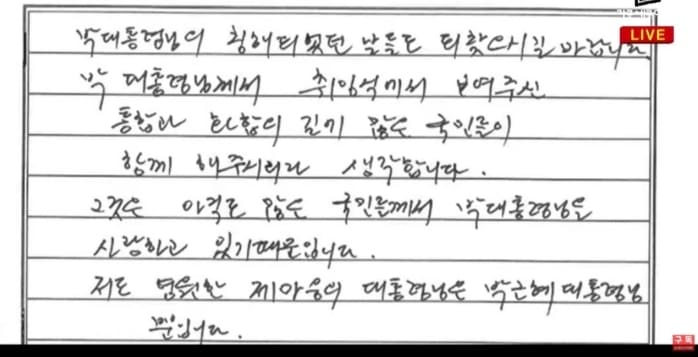 LIVE
박대통령님의 훼되었던 날들도 되찾으시길 바랍니다.
박 대통령님께서 취임식에서 보여주신
통합과 화합의 길에 많은 국민들이
함께 해주시리라 생각합니다.
그것은 아직도 많은 국민들께서 박대통령님을
사랑하고 있기때문입니다.
저도 영원한 제마음의 대통령님은 박근혜대통령님
뿐입니다.
구독